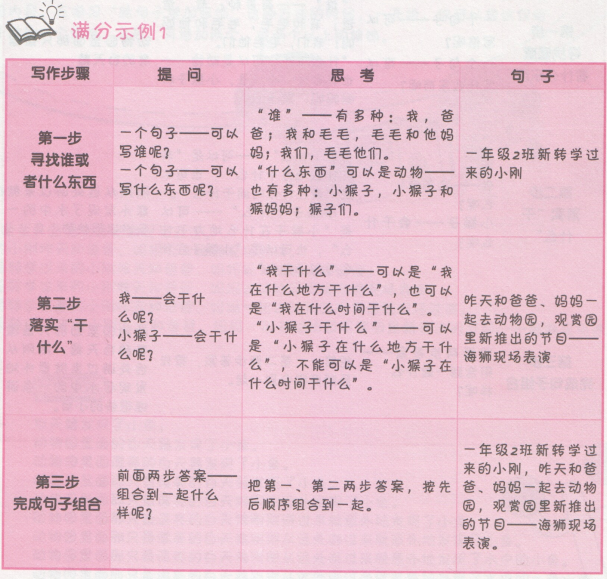 满分示例1
写作步骤
提 问
思 考
句 子
第一步
寻找谁或
者什么东西
一个句子——可以
写谁呢？
一个句子——可以
写什么东西呢？
“谁”——有多种：我，爸
爸；我和毛毛，毛毛和他妈
妈；我们，毛毛他们。
“什么东西”可以是动物——
也有多种：小猴子，小猴子和
猴妈妈；猴子们。
一年级2班新转学过
来的小刚
第二步
落实“干
什么”
我——会干什
么呢？
小猴子——会干什
么呢？
“我干什么”——可以是“我
在什么地方干什么”，也可以
是“我在什么时间干什么”。
“小猴子干什么”——可以
是“小猴子在什么地方干什
么”，不能可以是“小猴子在
什么时间干什么”。
昨天和爸爸、妈妈一
起去动物园，观赏园
里新推出的节目——
海狮现场表演
第三步
完成句子组合
前面两步答案——
组合到一起什么
样呢？
把第一、第二两步答案，按先
后顺序组合到一起。
一年级2班新转学过
来的小刚，昨天和爸
爸、妈妈一起去动物
园，观赏园里新推出
的节目——海狮现场
表演。